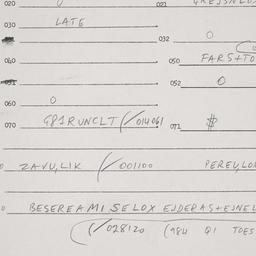 020 021
030 LATE
032 O
040 050 FARS+TO
052 O
060 O
070 G81RUNCLT (/014061 071 $
ZAVU,LIK (/001100 PEREU,LO
BESEREAMI SELOX EJDEPAS+EJNEL
(/028120 (984 Q1 TOES